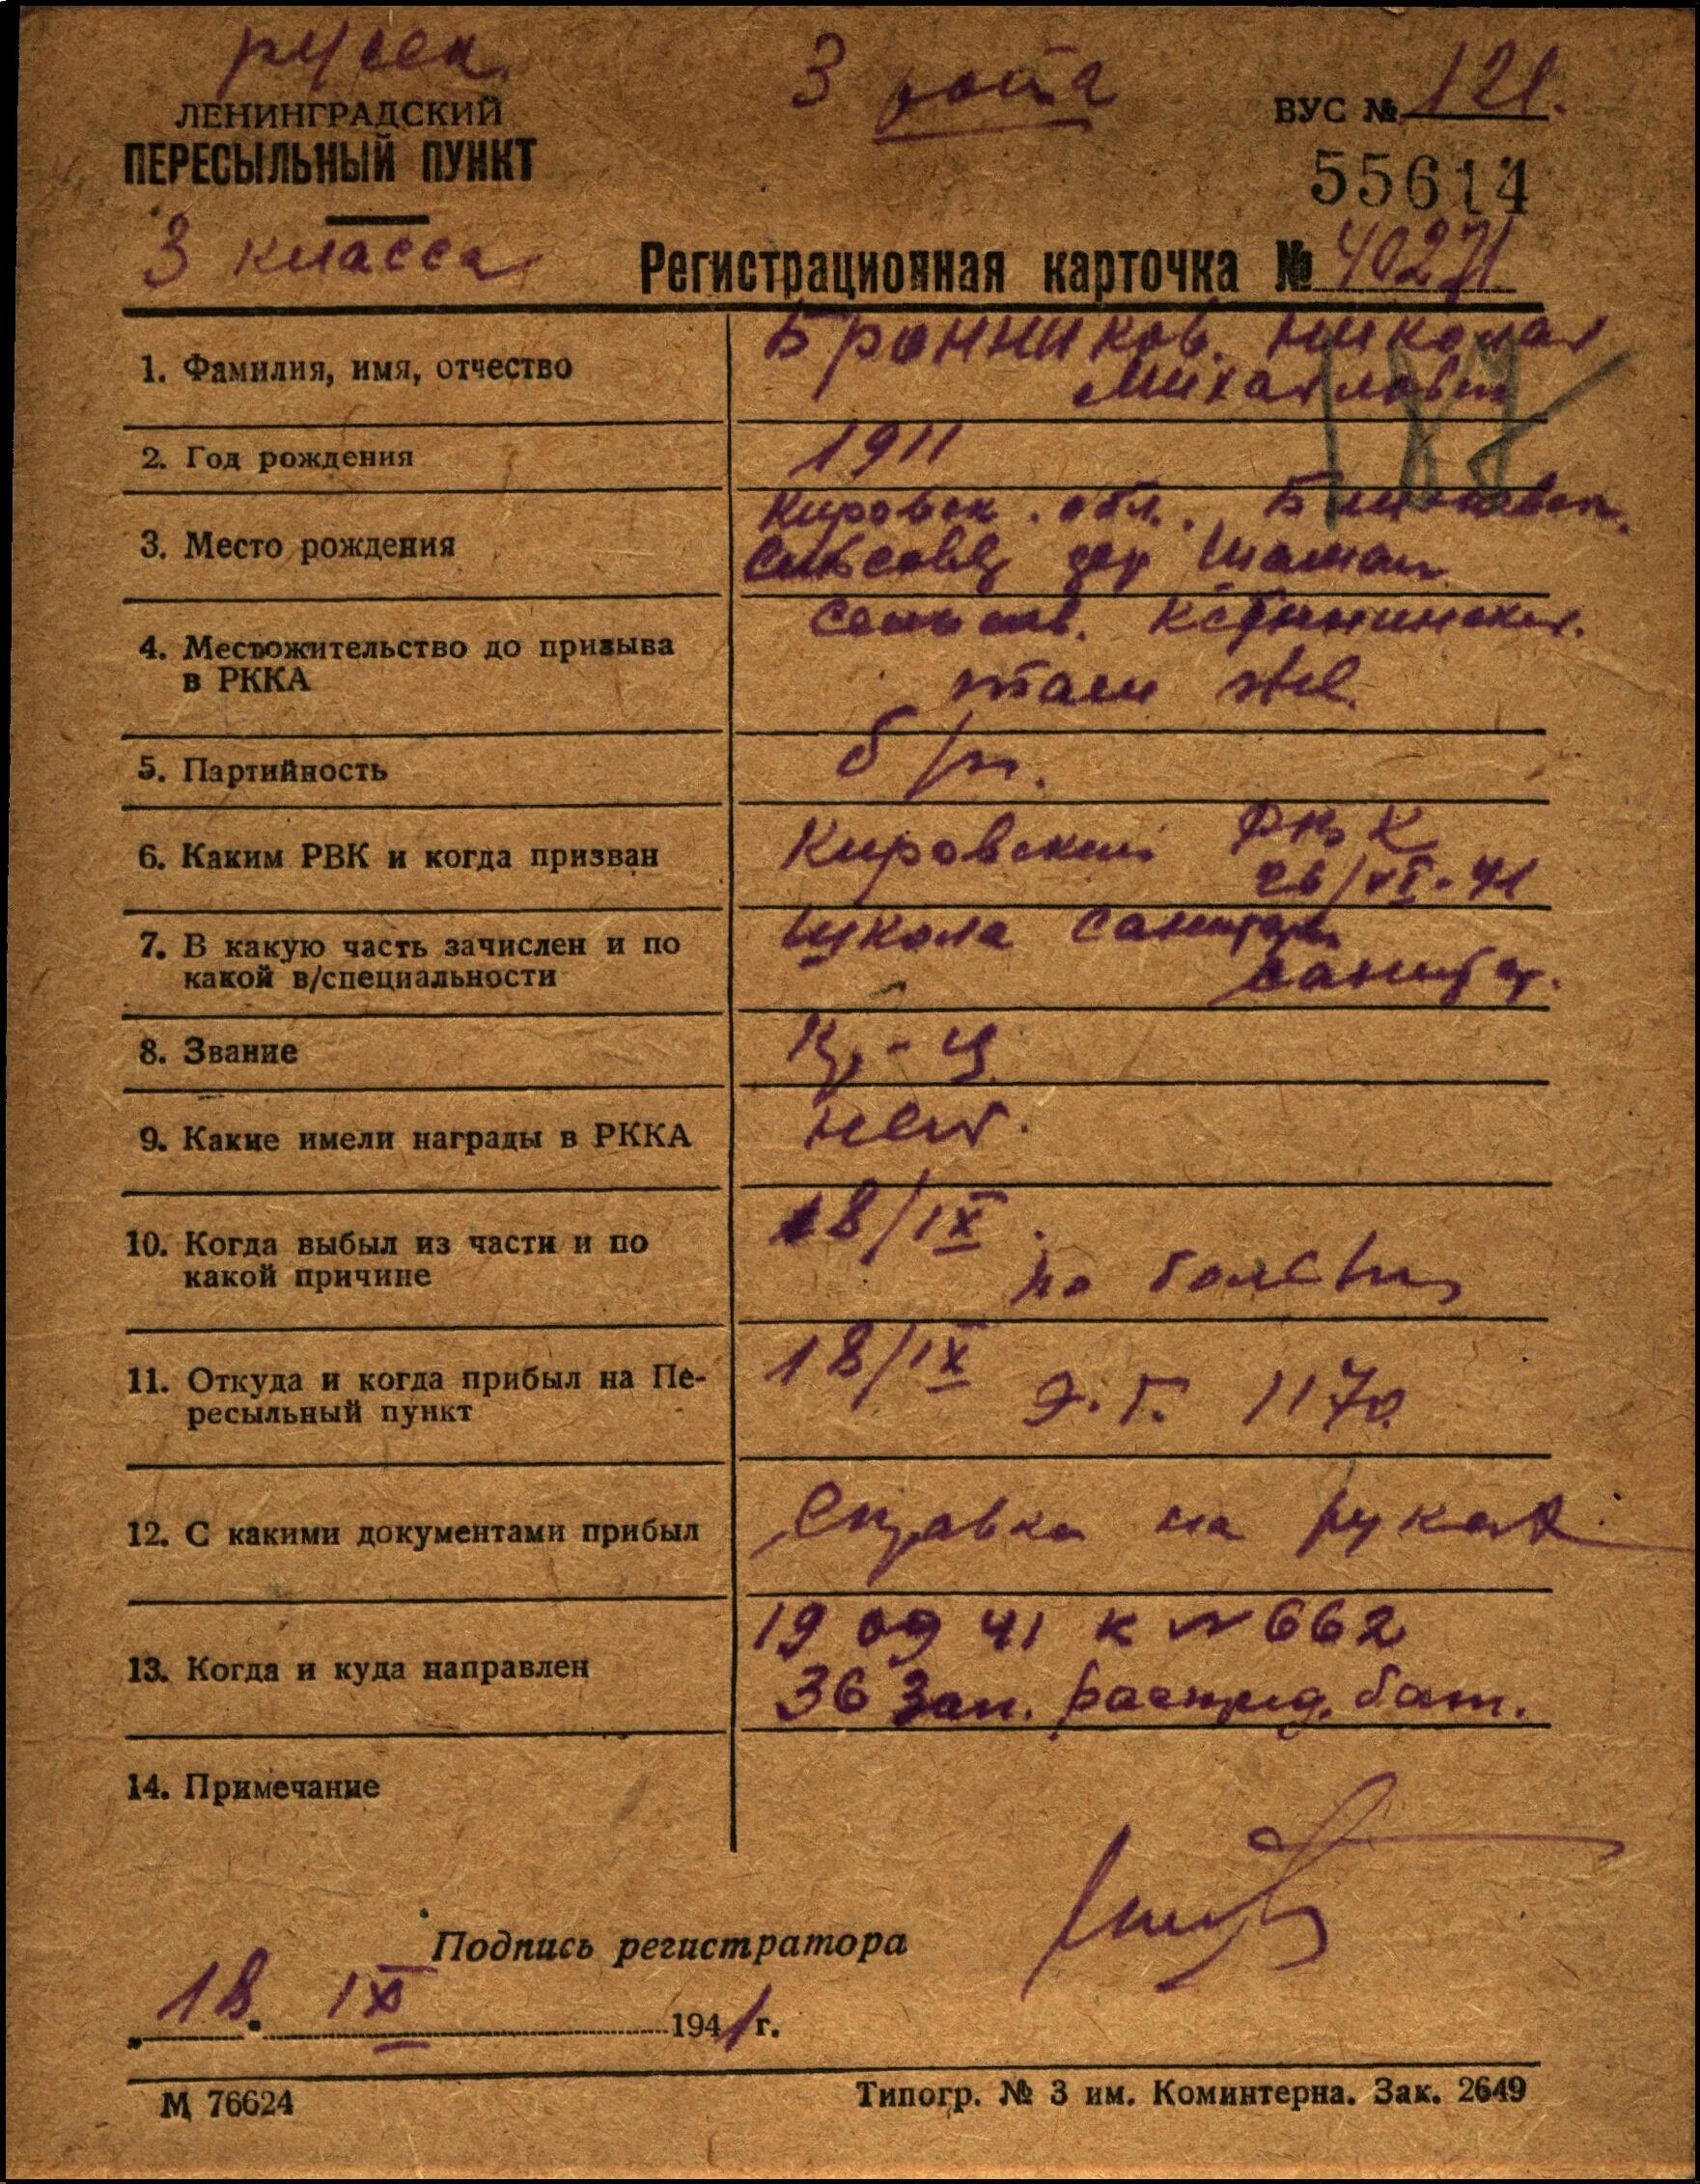 русск.
3 рота
ВУС № 121.
ЛЕНИНГРАДСКИЙ
ПЕРЕСЫЛЬНЫЙ ПУНКТ
55614
3 класса
Регистрационная карточка № 40271
1. Фамилия, имя, отчество
Бронников. Николай
Михайлович
2. Год рождения
1911
3. Место рождения
Кировск. обл.
сельсовет дер
4. Местожительство до призыва
в РККА
там же.
5. Партийность
б/п.
6. Каким РВК и когда призван
Кировским РВК
41
7. В какую часть зачислен и по
какой в/специальности
школа санитар
санитар.
8. Звание
Кр-ц
9. Какие имели награды в РККА
нет.
10. Когда выбыл из части и по
какой причине
18/IX.
по болезни
11. Откуда и когда прибыл на Пе-
ресыльный пункт
18/IX
Э.Г. 1170
12. С какими документами прибыл
Справка на руках.
13. Когда и куда направлен
19 09 41 к № 662
36 Зап. распред. бат.
14. Примечание
Подпись регистратора
18. IX 1941 г.
М 76624
Типогр. № 3 им. Коминтерна. Зак. 2649